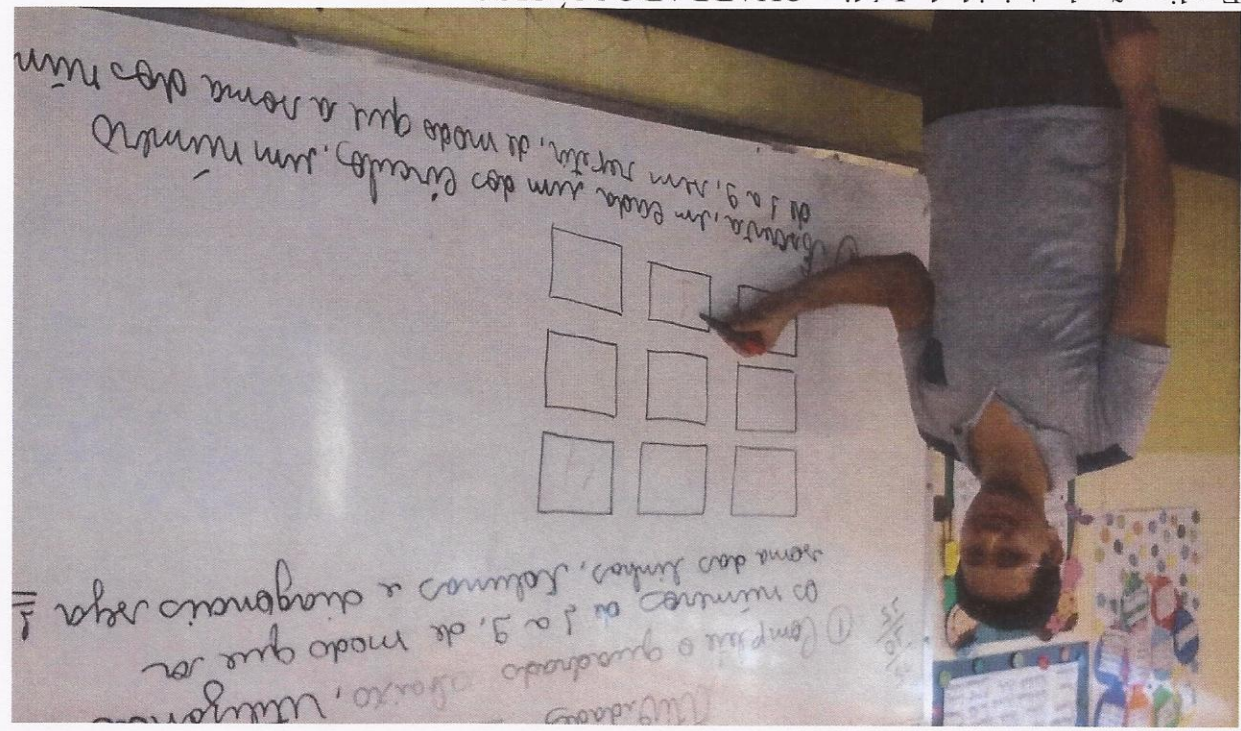 Atividades
① Complete o quadrado abaixo, utilizan
os números de 1 a 9, de modo que a
soma das linhas, colunas e diagonais seja
② Escreva, em cada um dos círculos, um número
de 1 a 9, sem repetir, de modo que a soma dos núm